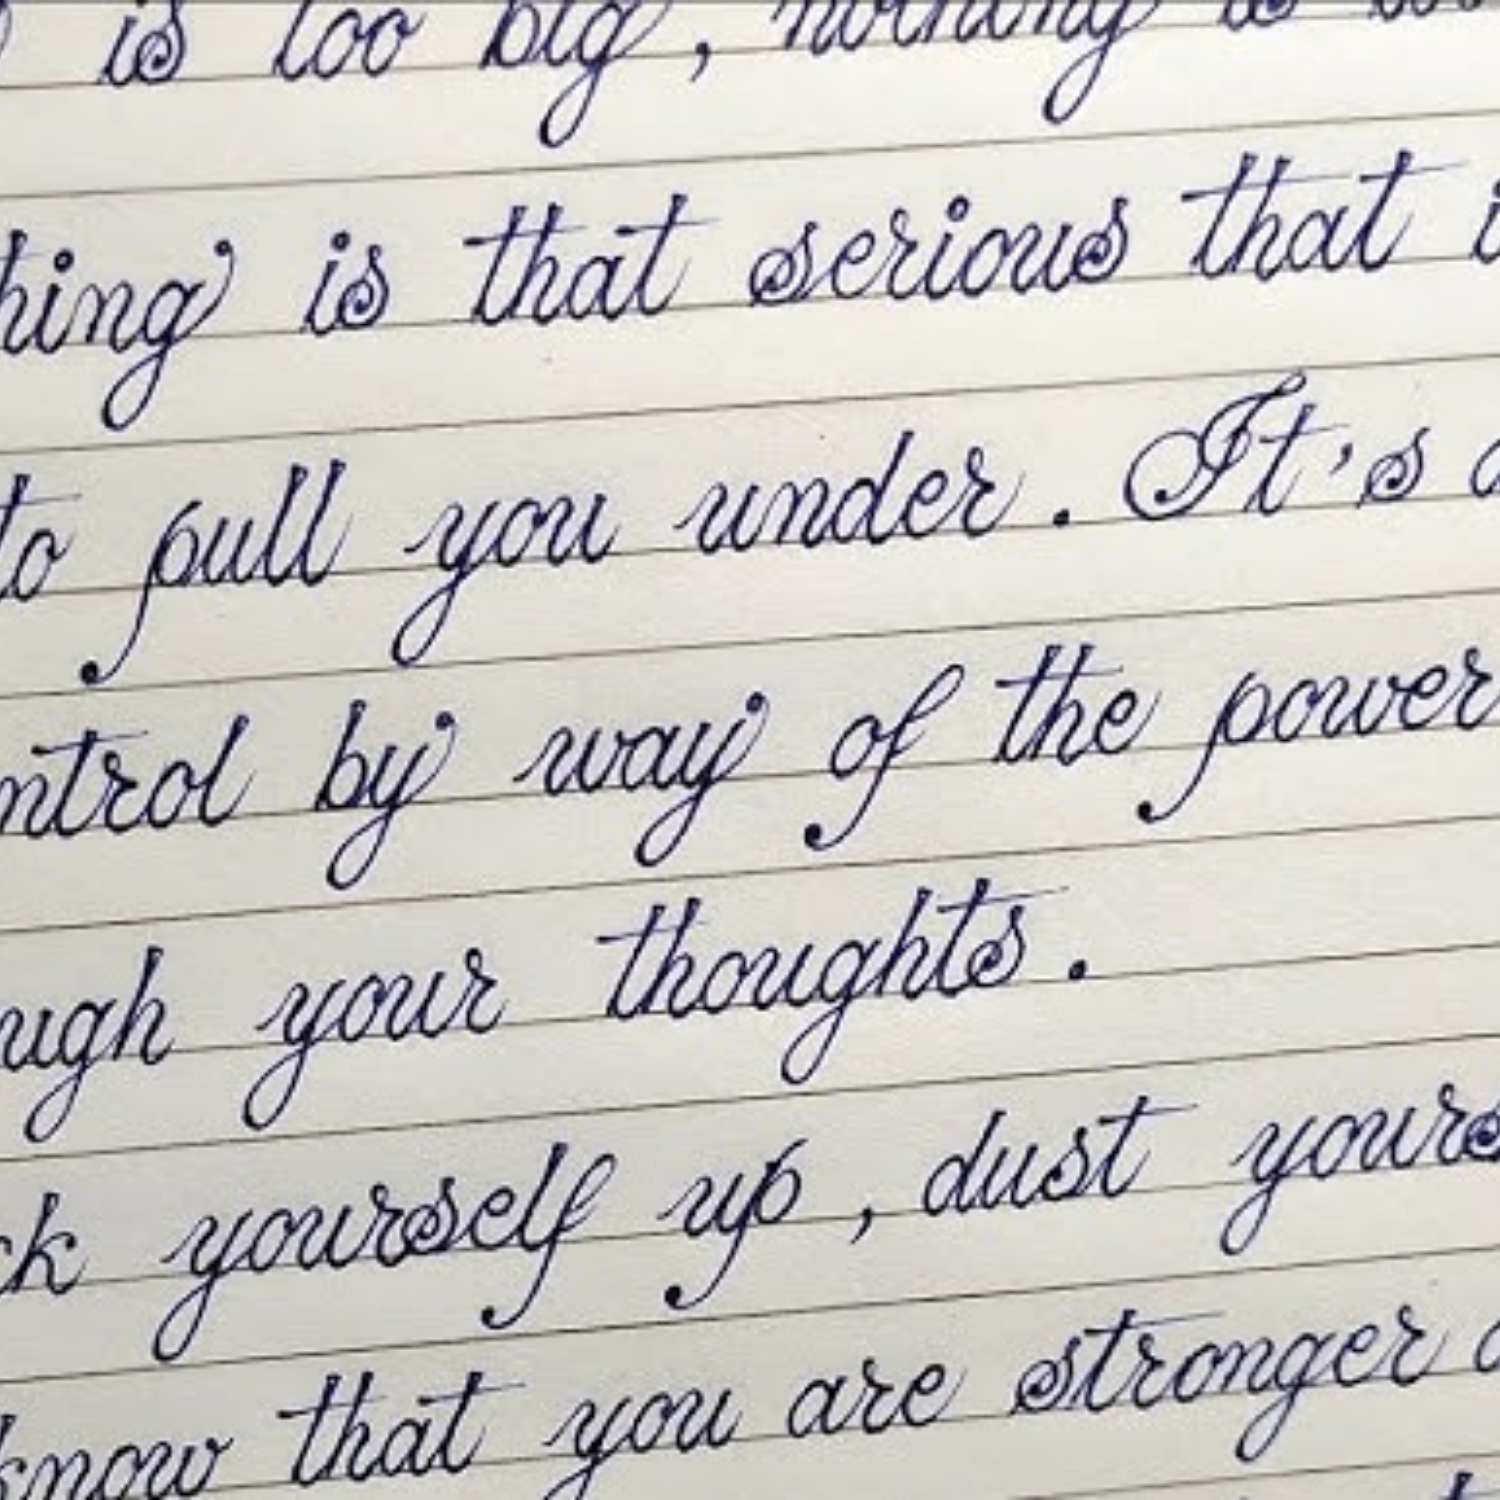 is too big, nothing is
hing is that serious that
to pull you under. It's
ntrol by way of the power
ugh your thoughts.
ck yourself up, dust yours
know that you are stronger